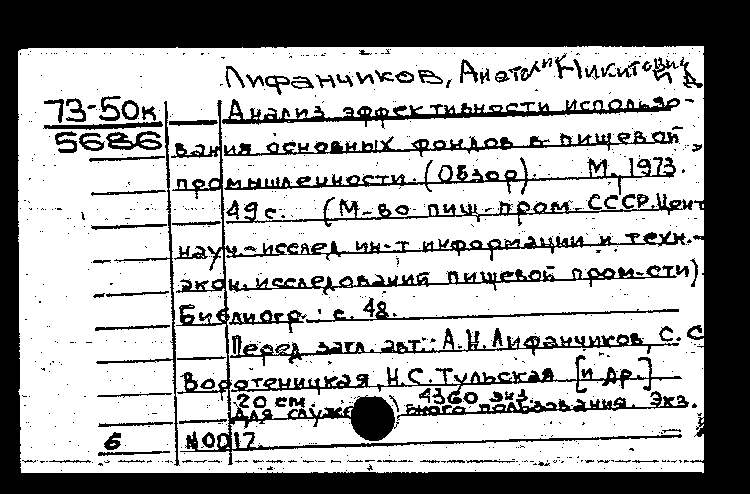 Лифанчиков, Анатолий Никитович
73-50к
5686
Анализ эффективности использо-
вания основных фондов в пищевой
промышленности. (Обзор). М., 1973.
49 с. (М-во пищ. пром. СССР. Цент
науч.-исслед. ин-т информации и техн.-
экон. исследований пищевой пром-сти).
Библиогр.: с. 48.
Перед загл. авт.: А.Н. Лифанчиков, С. С
Воротеницкая, Н.С. Тульская [и др.]
20 см. 4360 экз.
Для служе ного пользования. Экз.
6 №0017.